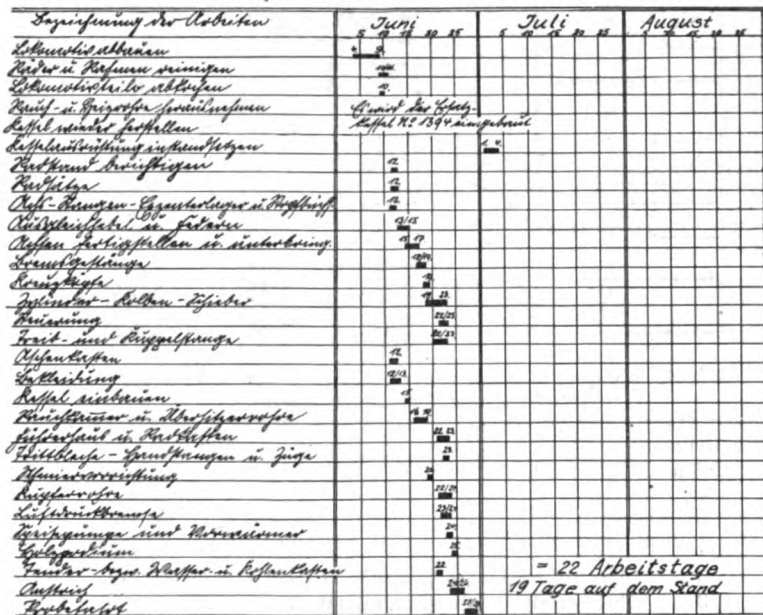 Bezeichnung der Arbeiten Juni Juli August
5 10 15 20 25 5 10 15 20 25 5 10 15 20 25
Lokomotive abbauen 4. 9.
Räder u. Rahmen reinigen
Lokomotivteile abkochen 10.
Rauch- u. Heizrohre herausnehmen Es wird der Ersatz-
Kessel wieder herstellen kessel No 1394 eingebaut
Kesselausrüstung instandsetzen 1. 4.
Radstand berichtigen 12.
Radsätze 12.
Achs-Stangen-Exzenterlager u. 12.
Ausgleichhebel u. Federn 13/15.
Achsen fertigstellen u. unterbring. 15. 17.
Bremsgestänge 18/19.
Kreuzköpfe 19.
Zylinder - Kolben - Schieber 19. 23.
Steuerung 22/23.
Treib- und Kuppelstange 20/23.
Aschenkasten 12.
Bekleidung 12/13.
Kessel einbauen 15.
Rauchkammer u. Überhitzerrohre
Führerhaus u. Radkasten 22. 23.
Trittbleche - Handstangen u. Züge 23.
Schmiervorrichtung 20.
Kupferrohre 22/24.
Luftdruckbremse 23/24.
Speisepumpe und Vorwärmer 24.
Holzpodium 25.
Tender- bezw. Wasser- u. Kohlenkasten 22. = 22 Arbeitstage
Anstrich 19 Tage auf dem Stand
Probefahrt